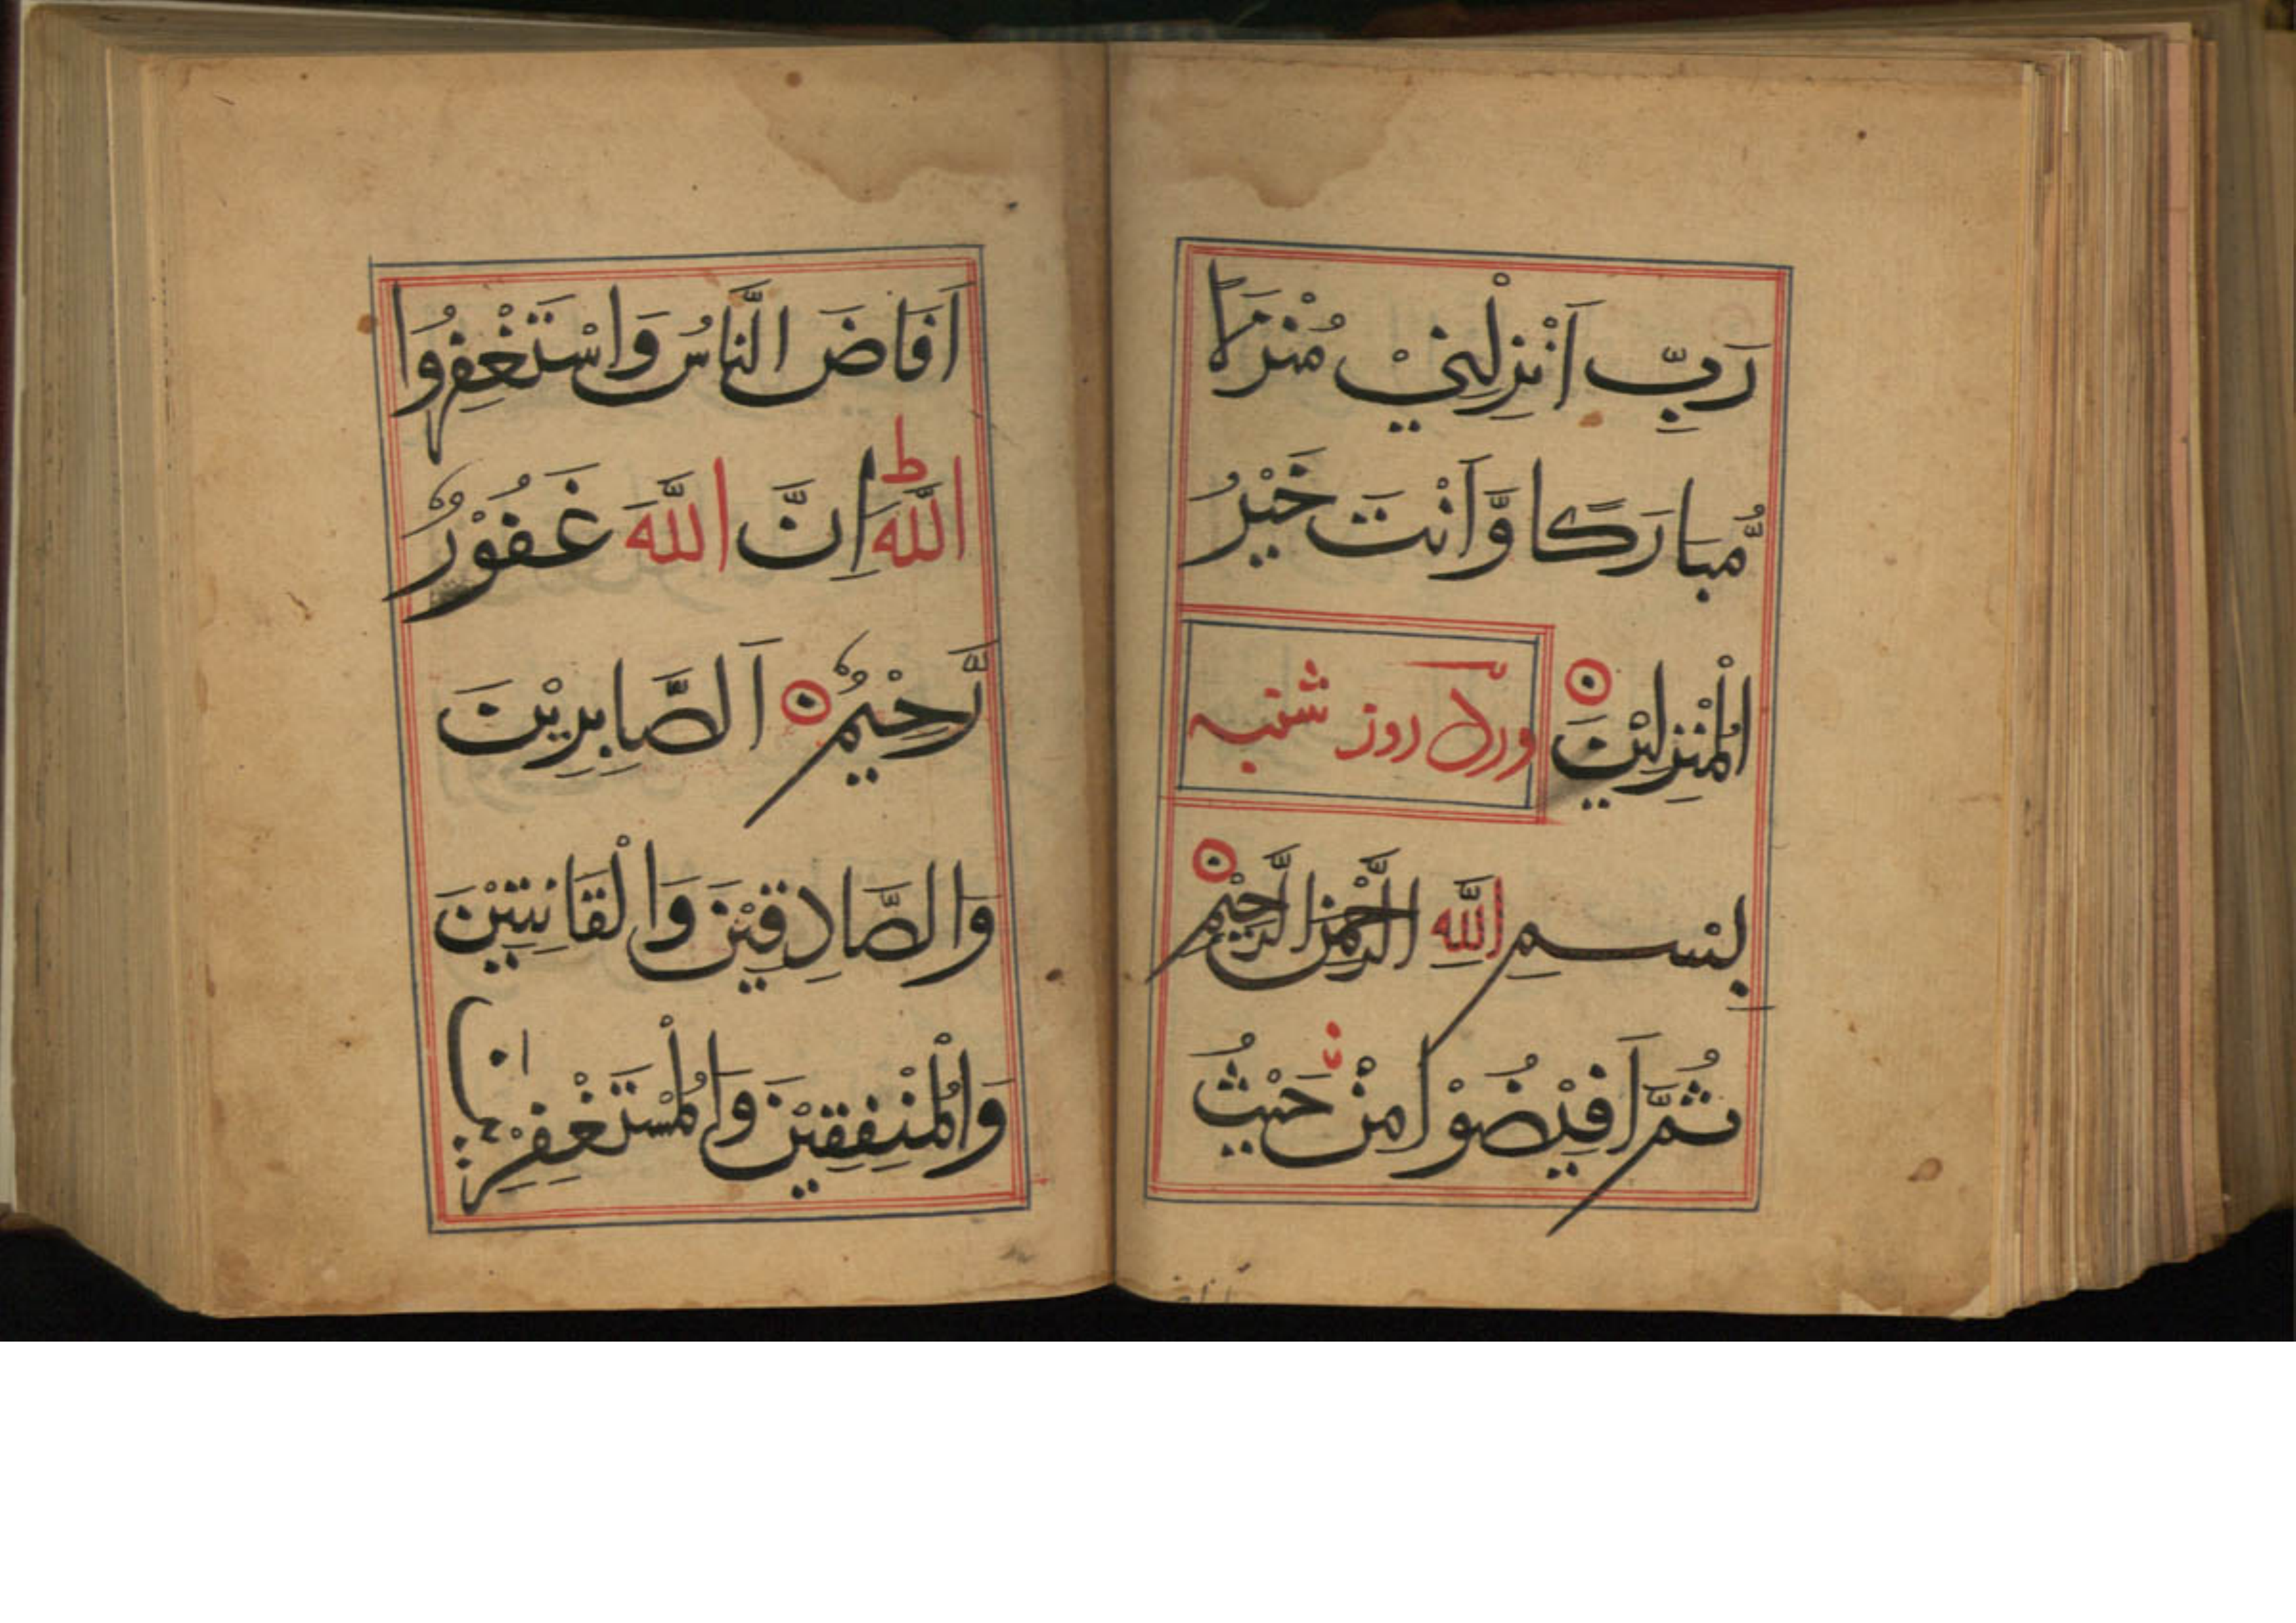 رَبِّ اَنْزِلْنِيْ مُنْزَلًا
مُّبَارَكًا وَّاَنْتَ خَيْرُ
الْمُنْزِلِيْنَ ورد روز شنبه
بِسْمِ اللَّهِ الرَّحْمٰنِ الرَّحِيْمِ
ثُمَّ اَفِيْضُوْا مِنْ حَيْثُ
اَفَاضَ النَّاسُ وَاسْتَغْفِرُوا
اللَّهَ ط اِنَّ اللَّهَ غَفُوْرٌ
رَّحِيْمٌ اَلصَّابِرِيْنَ
وَالصَّادِقِيْنَ وَالْقَانِتِيْنَ
وَالْمُنْفِقِيْنَ وَالْمُسْتَغْفِرِيْنَ